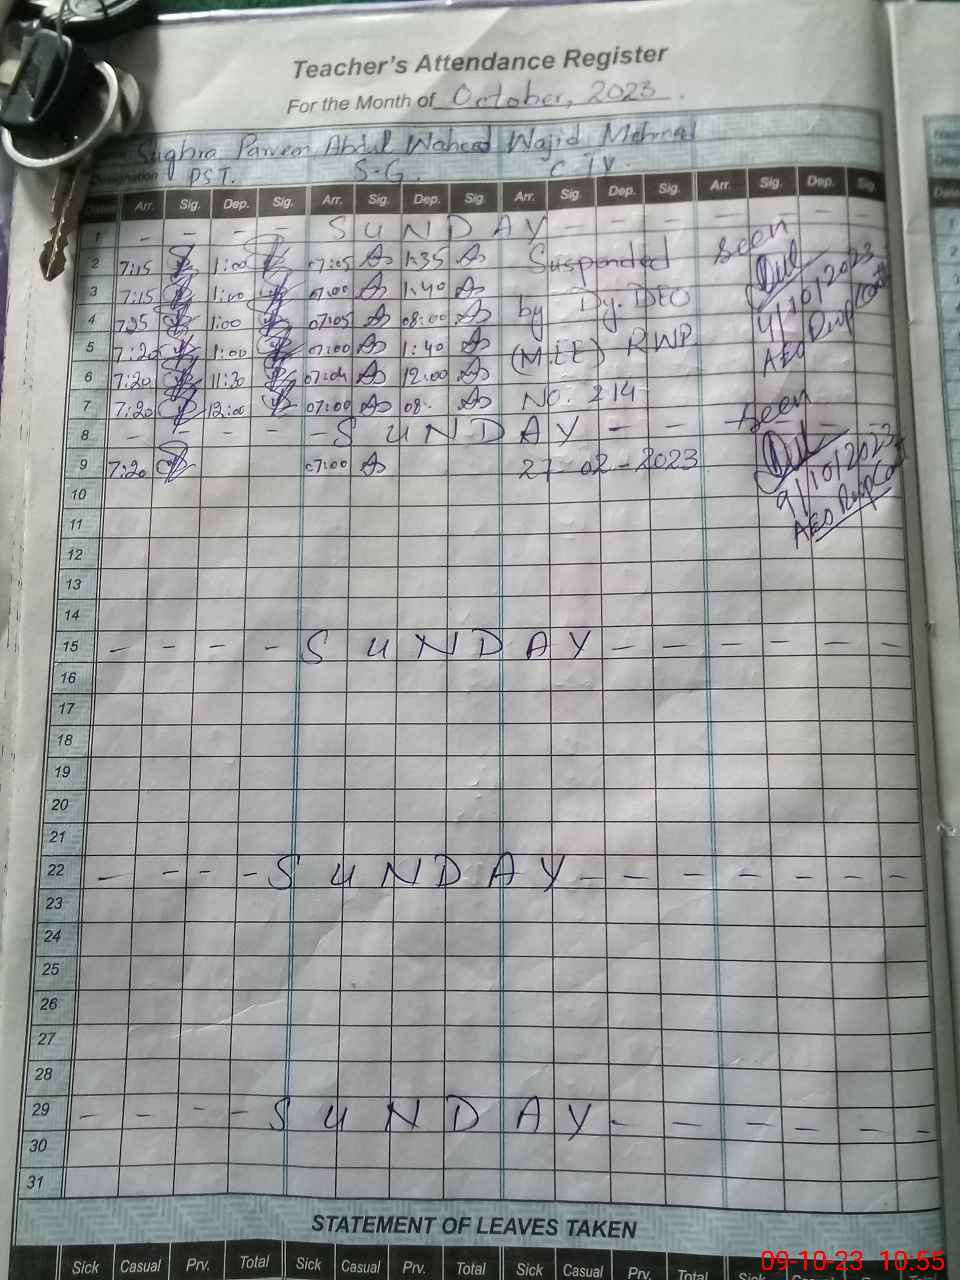 Teacher's Attendance Register
For the Month of October, 2023.
Sughra Parveen Abdul Waheed Wajid Mehmood
Designation PST. S-G. C-IV.
Dates Arr. Sig. Dep. Sig. Arr. Sig. Dep. Sig. Arr. Sig. Dep. Sig. Arr. Sig. Dep. Sig.
1 - - - - S U N D A Y - - - - - -
2 7:15 1:00 07:05 1:35 Suspended Seen
3 7:15 1:00 07:00 1:40 by Dy. DEO
4 7:25 1:00 07:05 08:00 4/10/2023
5 7:20 1:00 07:00 1:40 (M.EE) RWP AEO
6 7:20 11:30 07:04 12:00
7 7:20 12:00 07:00 08- No. 214 Seen
8 - - - - S U N D A Y - - - - -
9 7:20 07:00 27-02-2023
9/10/2023
10
AEO Rwp Cantt
11
12
13
14
15 - - - - S U N D A Y - - - - - -
16
17
18
19
20
21
22 - - - - S U N D A Y - - - - - - -
23
24
25
26
27
28
29 - - - - S U N D A Y - - - - - - -
30
31
STATEMENT OF LEAVES TAKEN
Sick Casual Prv. Total Sick Casual Prv. Total Sick Casual Prv. Total Sick Casual
09-10-23 10:55